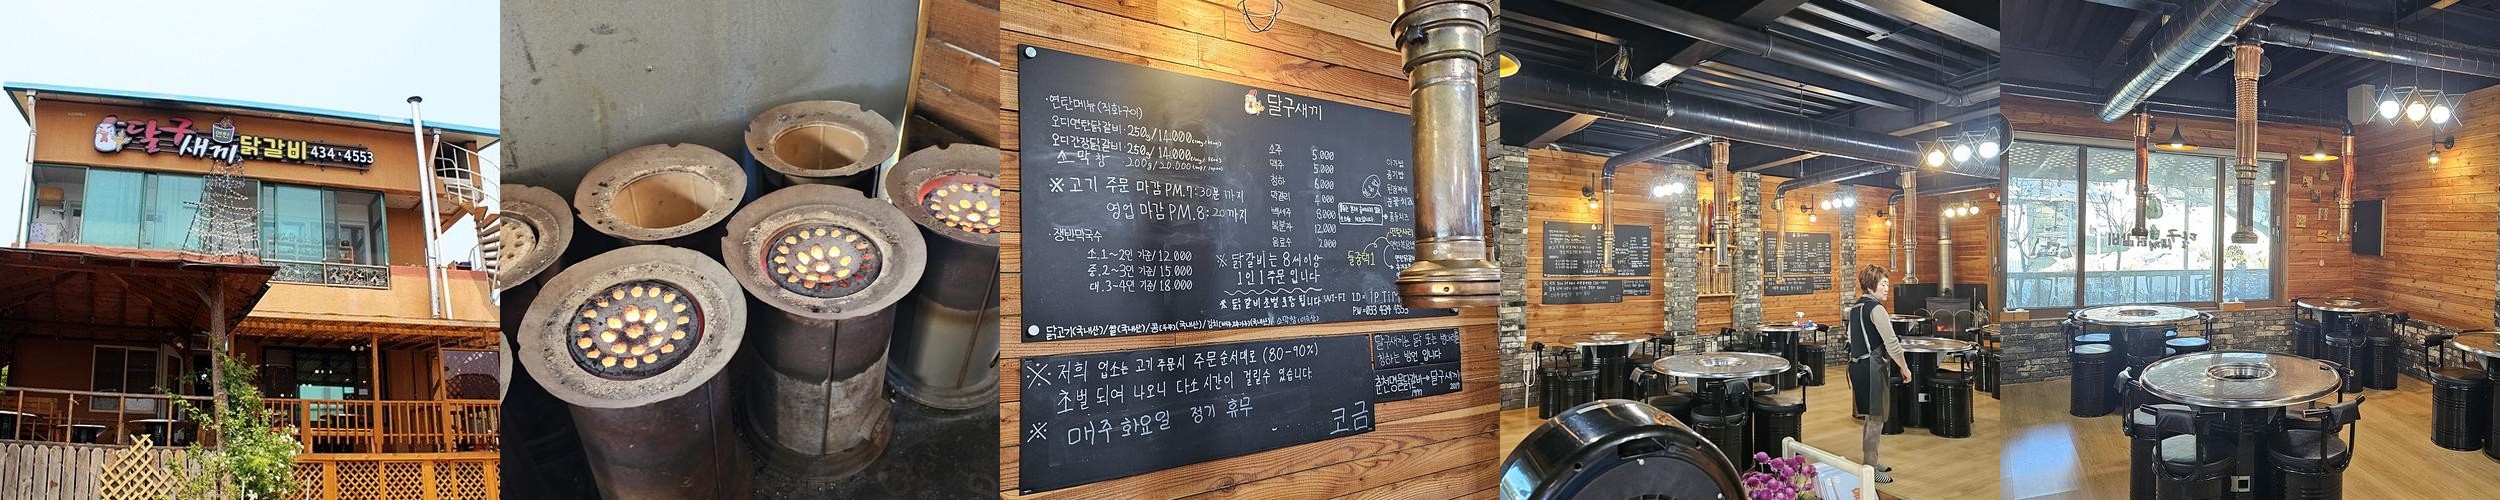 달구
새끼
연탄
닭갈비 434·4553
달구새끼
·연탄메뉴(직화구이)
오디연탄닭갈비·250g/14,000
오디간장닭갈비·250g/14,000
소막창 ·200g/20,000
※고기 주문 마감 P.M.7:30분 까지
영업 마감 P.M.8:20까지
·쟁반막국수
소.1~2인 기준/12,000
중.2~3인 기준/15,000
대.3~4인 기준/18,000
소주 5,000
맥주 5,000
청하 6,000
막걸리 4,000
백세주 8,000
복분자 12,000
음료수 2,000
공기밥
된장찌개
모듬치즈
둘중택1
※ 닭갈비는 8세이상
1인 1주문 입니다
※ 닭갈비 초벌 포장 됩니다
WI-FI ID=ip Tim
PW=033 434 4553
닭고기(국내산)/쌀(국내산)/콩(두부)(국내산)/김치
※ 저희 업소는 고기 주문시 주문 순서대로 (80-90%)
초벌 되여 나오니 다소 시간이 걸릴수 있습니다.
※ 매주 화요일 정기 휴무
코금
달구새끼는 닭 또는 병아리를
칭하는 방언 입니다
춘천명물닭갈비→달구새끼
1999 2017